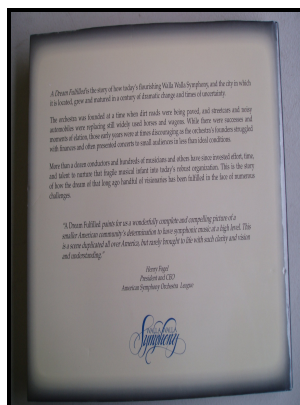 A Dream Fulfilled is the story of how today's flourishing Walla Walla Symphony, and the city in which
it is located, grew and matured in a century of dramatic change and times of uncertainty.
The orchestra was founded at a time when dirt roads were being paved, and streetcars and noisy
automobiles were replacing still widely used horses and wagons. While there were successes and
moments of elation, those early years were at times discouraging as the orchestra's founders struggled
with finances and often presented concerts to small audiences in less than ideal conditions.
More than a dozen conductors and hundreds of musicians and others have since invested effort, time,
and talent to nurture that fragile musical infant into today's robust organization. This is the story
of how the dream of that long ago handful of visionaries has been fulfilled in the face of numerous
challenges.
"A Dream Fulfilled: paints for us a wonderfully complete and compelling picture of a
smaller American community's determination to have symphonic music at a high level. This
is a scene duplicated all over America, but rarely brought to life with such clarity and vision
and understanding."
Henry Fogel
President and CEO
American Symphony Orchestra League
WALLA WALLA
Symphony